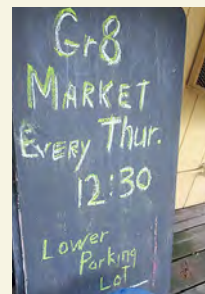 Gr8
MARKET
EVERY Thur.
12:30
Lower
Parking
LoT